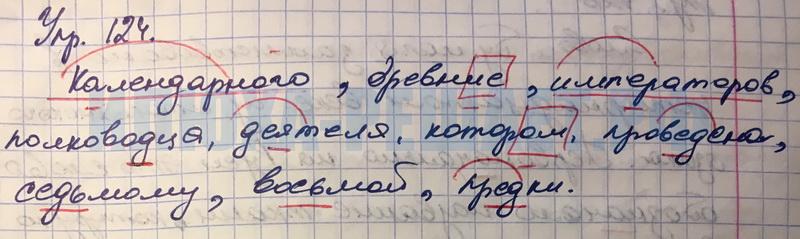 Упр. 124.
Календарного, древние, императоров,
полководца, деятеля, котором, проведена,
седьмому, восьмой, предки.